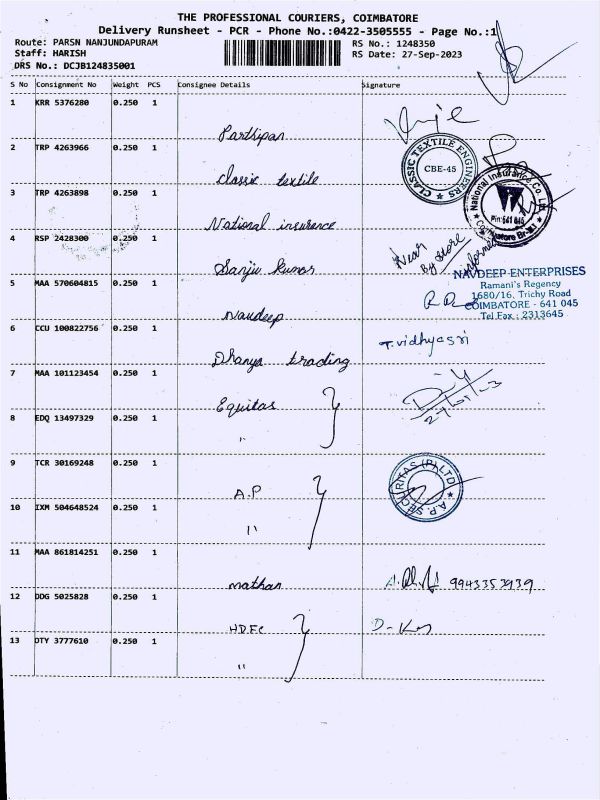 THE PROFESSIONAL COURIERS, COIMBATORE
Delivery Runsheet - PCR - Phone No.:0422-3505555 - Page No.:1
Route: PARSN NANJUNDAPURAM
Staff: HARISH
DRS No.: DCJB124835001
RS No.: 1248350
RS Date: 27-Sep-2023
S No Consignment No Weight PCS Consignee Details Signature
1 KRR 5376280 0.250 1
Parthipan
2 TRP 4263966 0.250 1
classic textile
CLASSIC TEXTILE ENGINEERS
CBE-45
3 TRP 4263898 0.250 1
National insurance
National Insurance Co. Ltd.
Pin:641 045
Coimbatore
4 RSP 2428300 0.250 1
Sanjiv kumar
Near By Store informed
5 MAA 570604815 0.250 1
Navdeep
NAVDEEP ENTERPRISES
Ramani's Regency
1680/16, Trichy Road
COIMBATORE - 641 045
Tel Fax : 2313645
6 CCU 100822756 0.250 1
Dhanya trading
T.vidhyasri
7 MAA 101123454 0.250 1
Equitas
8 EDQ 13497329 0.250 1
"
9 TCR 30169248 0.250 1
A.P
A.P. SECURITAS (P) LTD
10 IXM 504648524 0.250 1
"
11 MAA 861814251 0.250 1
mathan
9943353939
12 DDG 5025828 0.250 1
HDFC
13 OTY 3777610 0.250 1
"